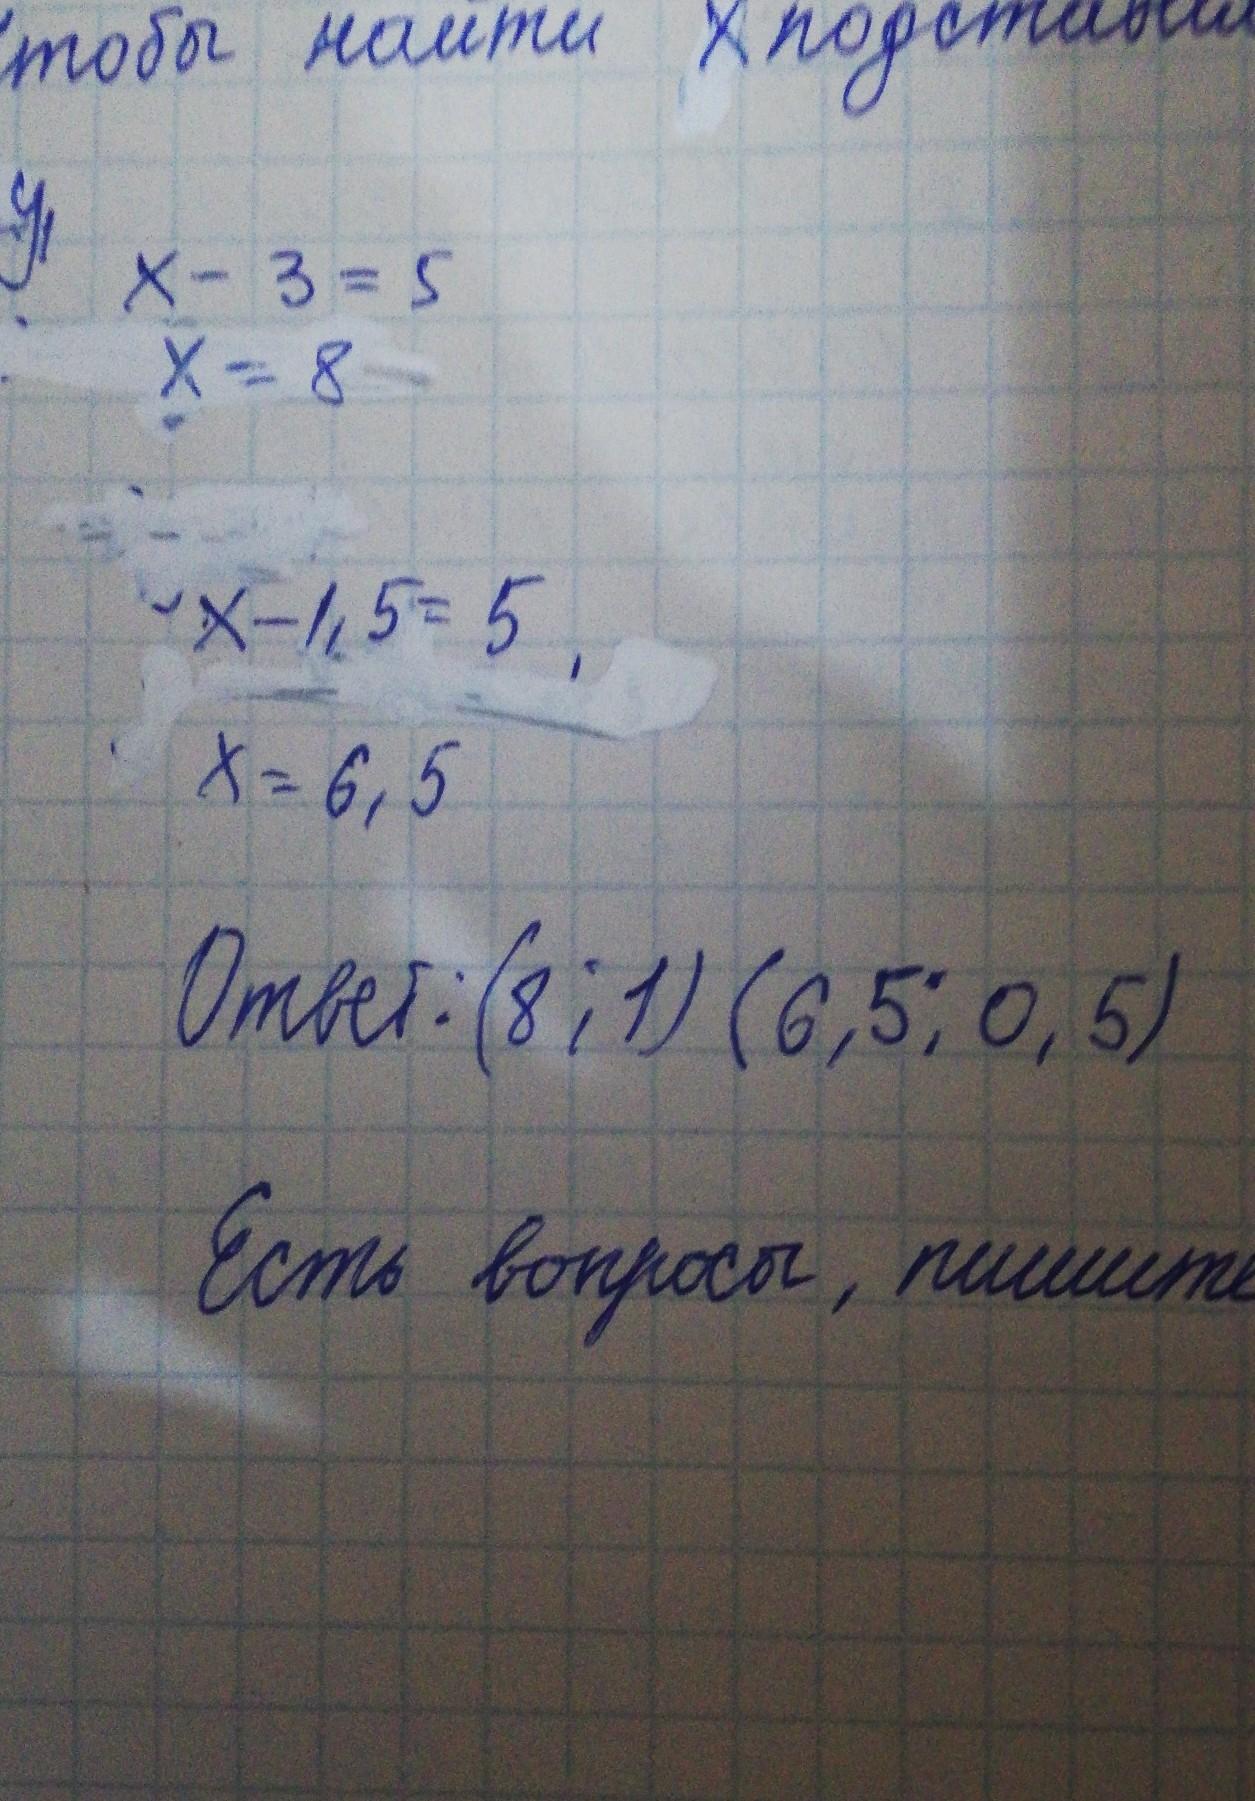 чтобы найти x подставим
y,
x - 3 = 5
x = 8
x - 1,5 = 5,
x = 6,5
Ответ: (8; 1) (6,5; 0,5)
Есть вопросы, пишите